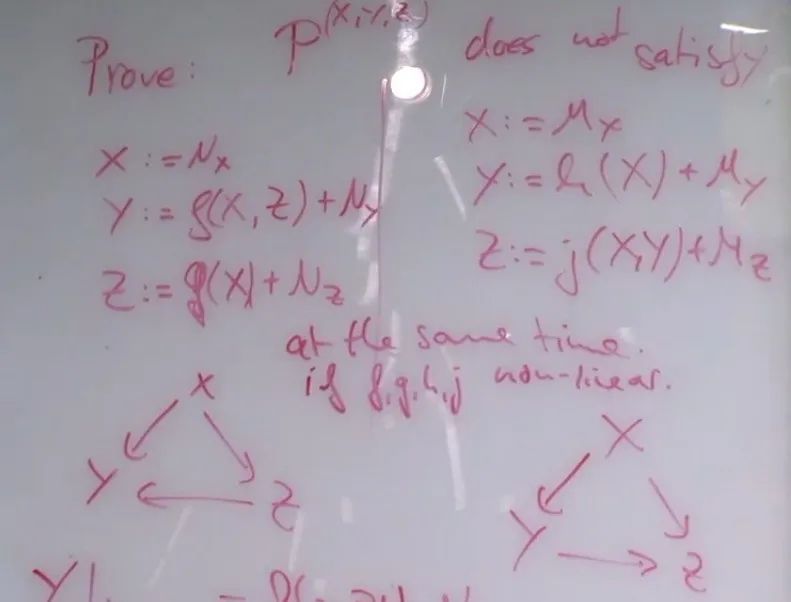 Prove: P^(X,Y,Z) does not satisfy
X := N_X
Y := f(X, Z) + N_Y
Z := g(X) + N_Z
X := M_X
Y := h(X) + M_Y
Z := j(X,Y) + M_Z
at the same time.
if f,g,h,j non-linear.
X
Y Z
X
Y Z